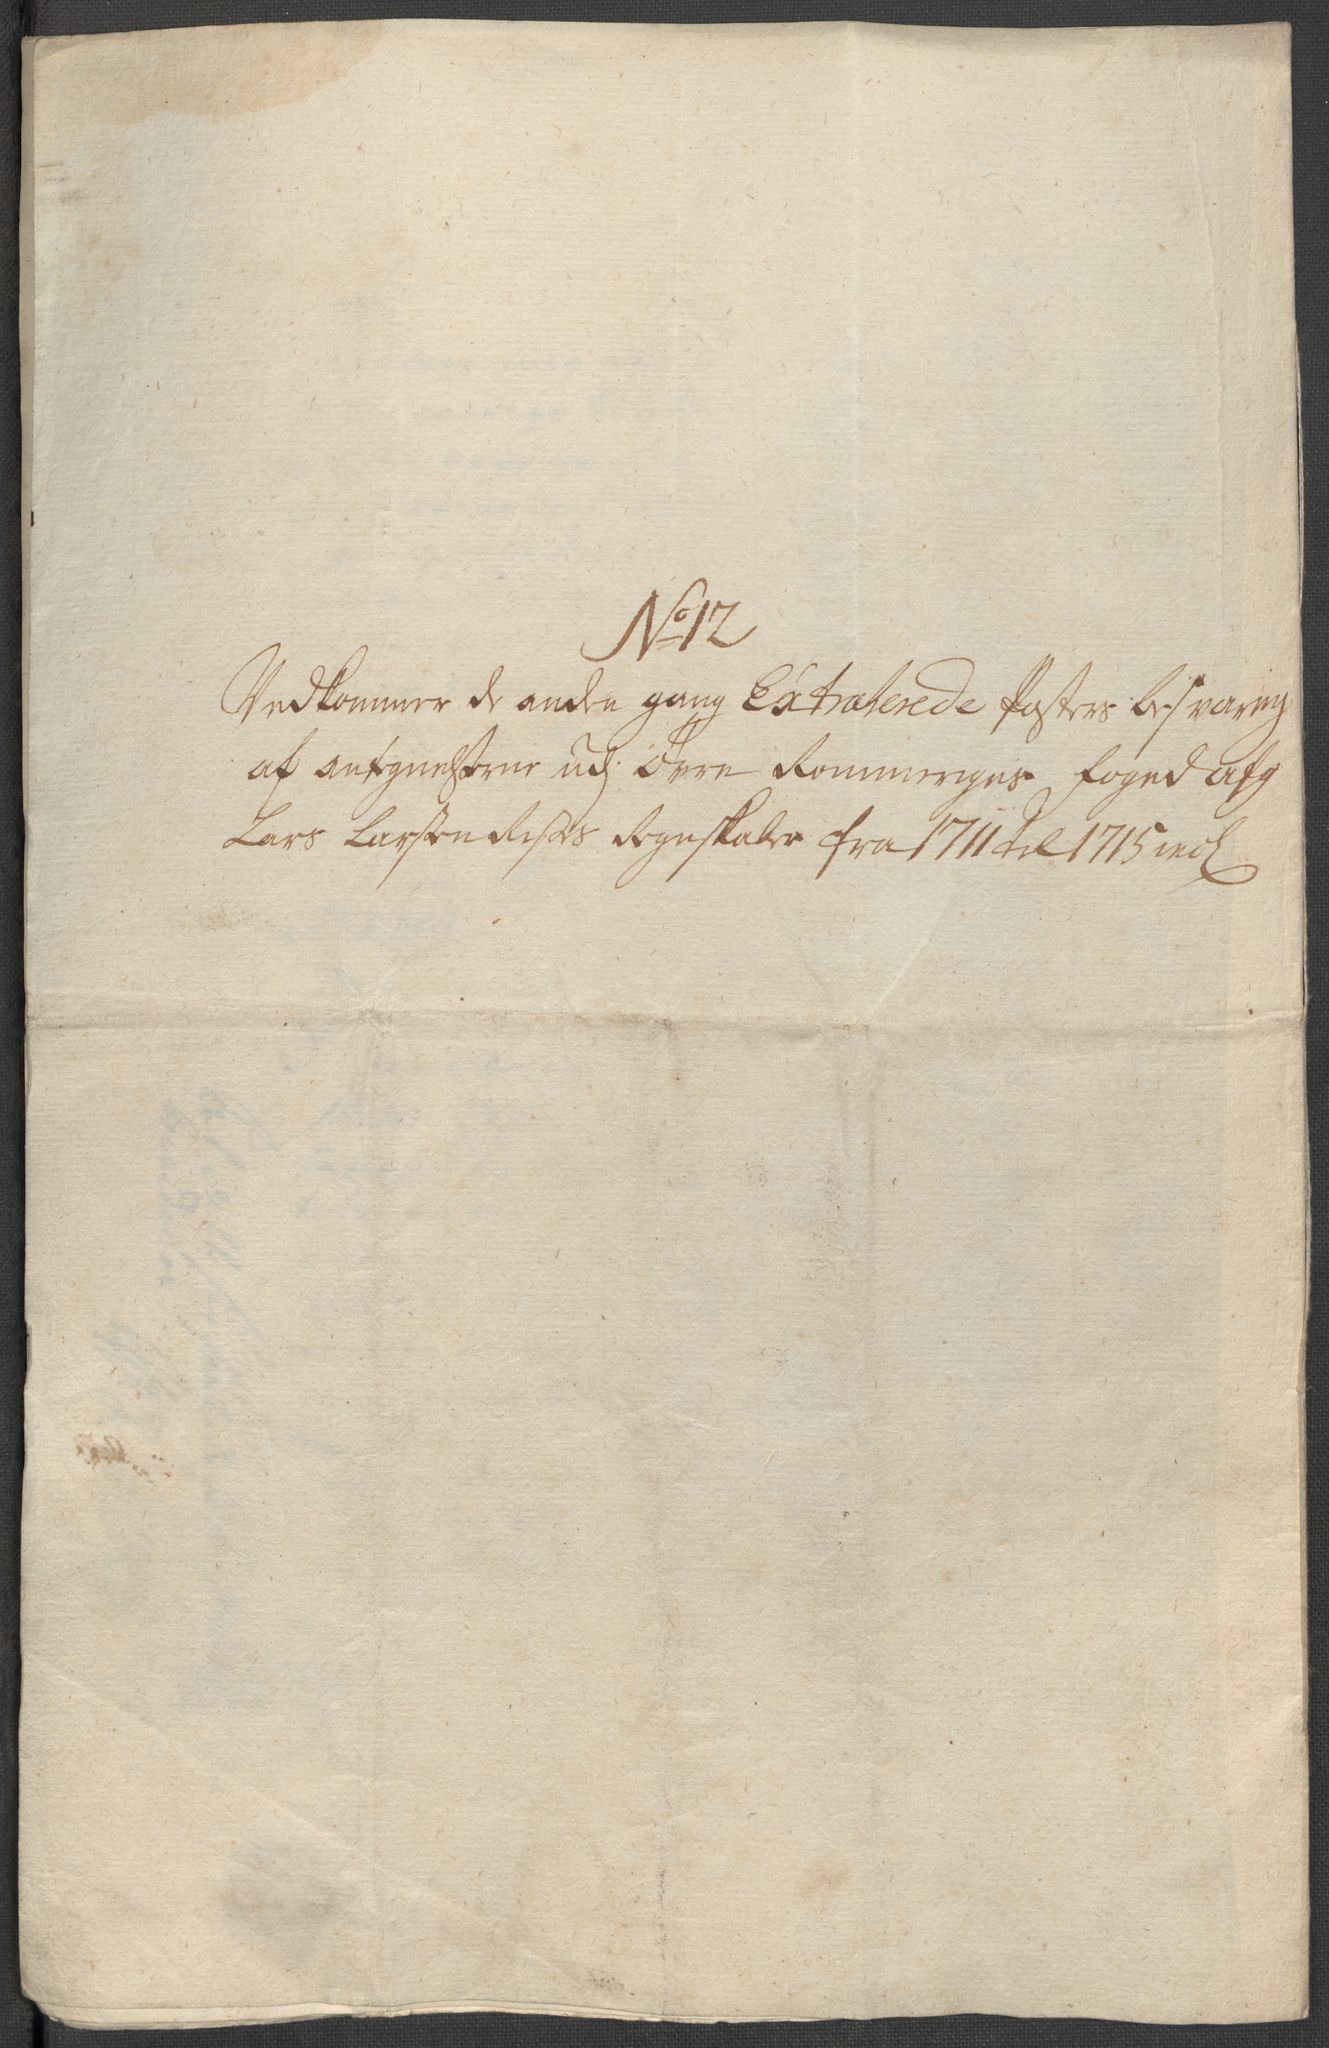 No 12
Vedkommer de anden gang Extraherede Posters besvaring
af antegnelserne udj Øvre Rommeriges foged afg
Lars Larsen Rists Regnskaber fra 1711 til 1715 incl